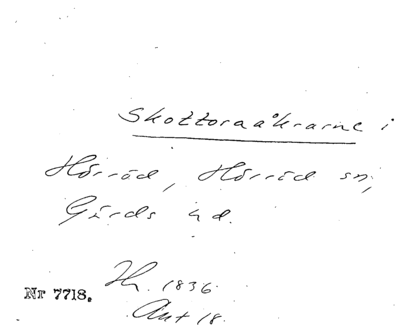 Skottoraåkrarne i
Hörröd, Hörröd sn,
Gärds hd.
Nr 7718.
Th. 1836.
Akt 18.